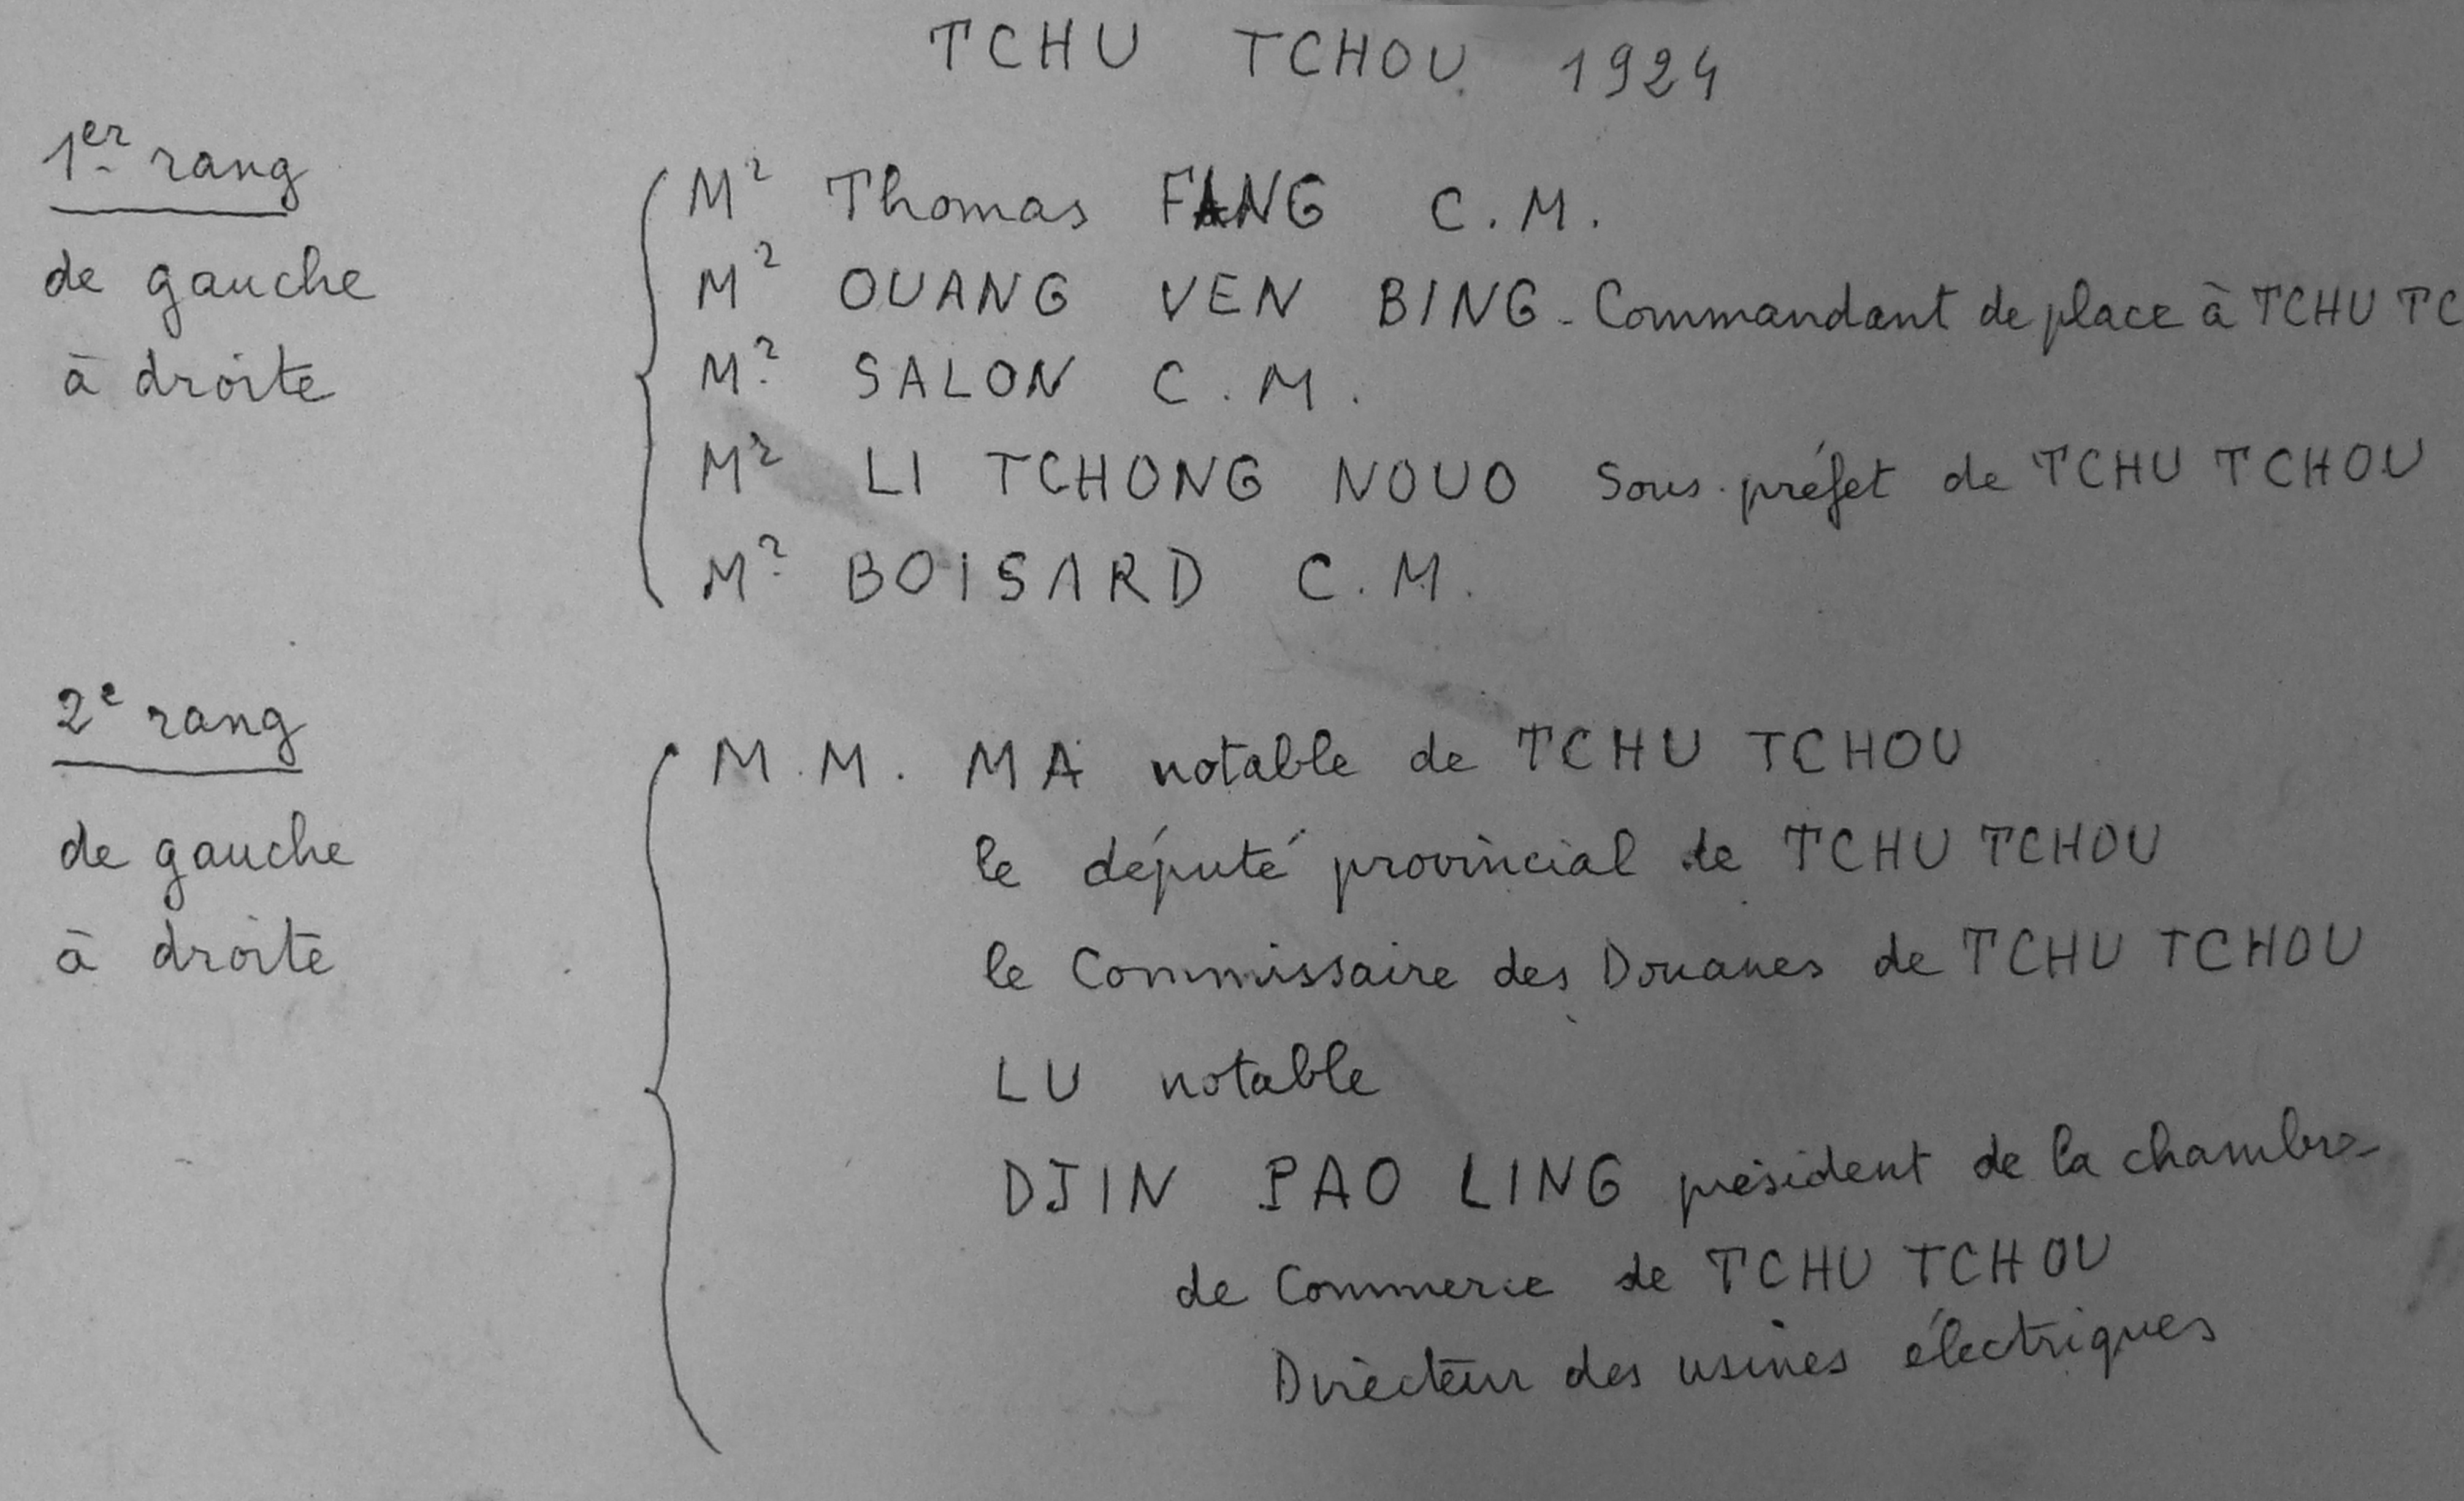 TCHU TCHOU 1924
1er rang
de gauche
à droite
Mr Thomas FANG C.M.
Mr OUANG VEN BING - Commandant de place à TCHU TC
Mr SALON C.M.
Mr LI TCHONG NOUO Sous-préfet de TCHU TCHOU
Mr BOISARD C.M.
2e rang
de gauche
à droite
M.M. MA notable de TCHU TCHOU
le député provincial de TCHU TCHOU
le Commissaire des Douanes de TCHU TCHOU
LU notable
DJIN PAO LING président de la chambre
de Commerce de TCHU TCHOU
Directeur des usines électriques